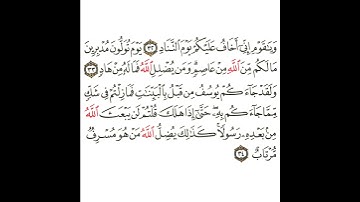 وَيَٰقَوْمِ إِنِّىٓ أَخَافُ عَلَيْكُمْ يَوْمَ ٱلتَّنَادِ ٣٢ يَوْمَ تُوَلُّونَ مُدْبِرِينَ
مَا لَكُم مِّنَ ٱللَّهِ مِنْ عَاصِمٍ وَمَن يُضْلِلِ ٱللَّهُ فَمَا لَهُۥ مِنْ هَادٍ ٣٣
وَلَقَدْ جَآءَكُمْ يُوسُفُ مِن قَبْلُ بِٱلْبَيِّنَٰتِ فَمَا زِلْتُمْ فِى شَكٍّ
مِّمَّا جَآءَكُم بِهِۦ حَتَّىٰٓ إِذَا هَلَكَ قُلْتُمْ لَن يَبْعَثَ ٱللَّهُ
مِنۢ بَعْدِهِۦ رَسُولًا كَذَٰلِكَ يُضِلُّ ٱللَّهُ مَنْ هُوَ مُسْرِفٌ
مُّرْتَابٌ ٣٤